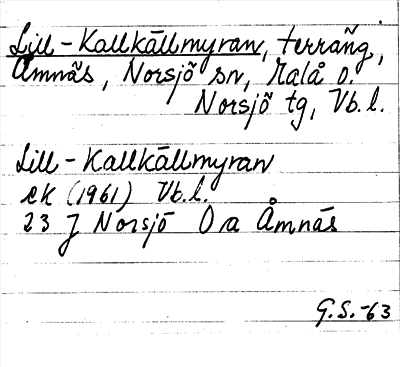 Lill-Kallkällmyran, terräng,
Åmnäs, Norsjö sn, Malå o.
Norsjö tg, Vb.l.
Lill-Kallkällmyran
ek (1961) Vb.l.
23 J Norsjö 0a Åmnäs
G.S.-63